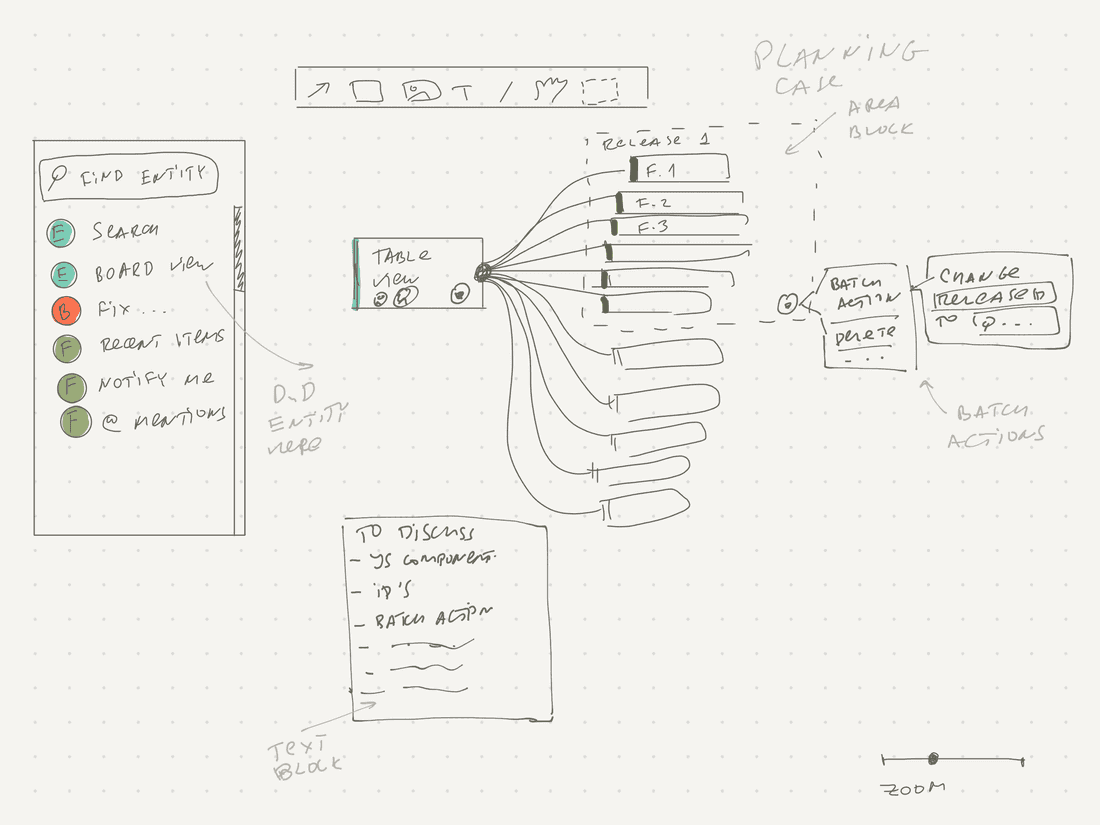 PLANNING
CASE
AREA
BLOCK
T
FIND ENTITY
E SEARCH
E BOARD VIEW
B FIX ...
F RECENT ITEMS
F NOTIFY ME
F @ MENTIONS
D&D
ENTITY
HERE
TABLE
VIEW
RELEASE 1
F.1
F.2
F.3
BATCH
ACTION
DELETE
. . .
CHANGE
RELEASE
TO
BATCH
ACTIONS
TO DISCUSS
- JS COMPONENT.
- ID'S
- BATCH ACTION
TEXT
BLOCK
ZOOM